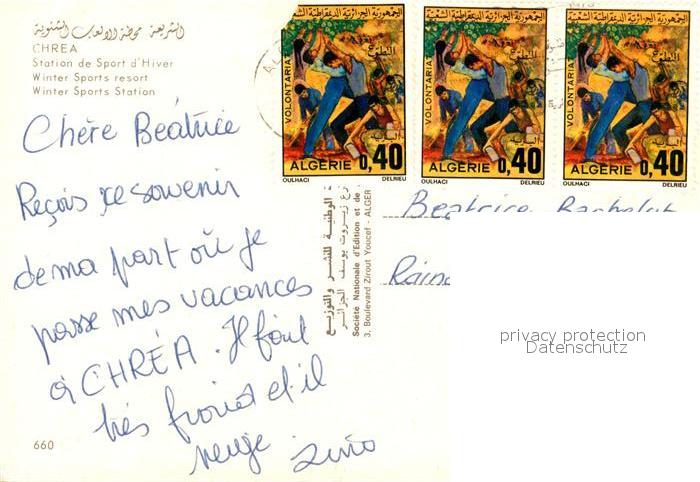 الشريعة محطة الالعاب الشتوية
CHREA
Station de Sport d'Hiver
Winter Sports resort
Winter Sports Station
Chère Beátrice
Reçois ce souvenir
de ma part où je
passe mes vacances
à CHRÉA. Il fait
très froid et il
neige
660
الجمهورية الجزائرية الديمقراطية الشعبية
VOLONTARIAT
التطوع
ALGÉRIE 0,40
OULHACI DELRIEU
الجمهورية الجزائرية الديمقراطية الشعبية
VOLONTARIAT
التطوع
ALGÉRIE 0,40
OULHACI DELRIEU
الجمهورية الجزائرية الديمقراطية الشعبية
VOLONTARIAT
التطوع
ALGÉRIE 0,40
OULHACI DELRIEU
الوطنية للنشر والتوزيع
زيروت يوسف الجزائر
Société Nationale d'Edition et de
3, Boulevard Zirout Youcef - ALGER
Beatrice
privacy protection
Datenschutz